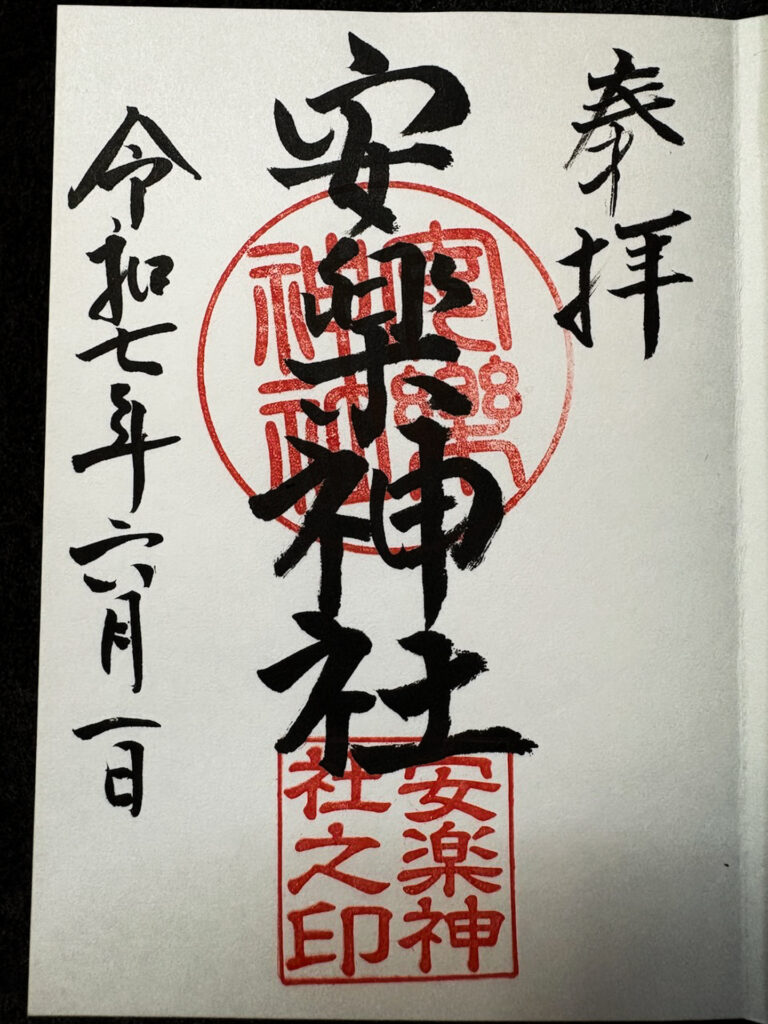 奉拝
安楽神社
令和七年六月一日
安樂
神社
安楽神
社之印